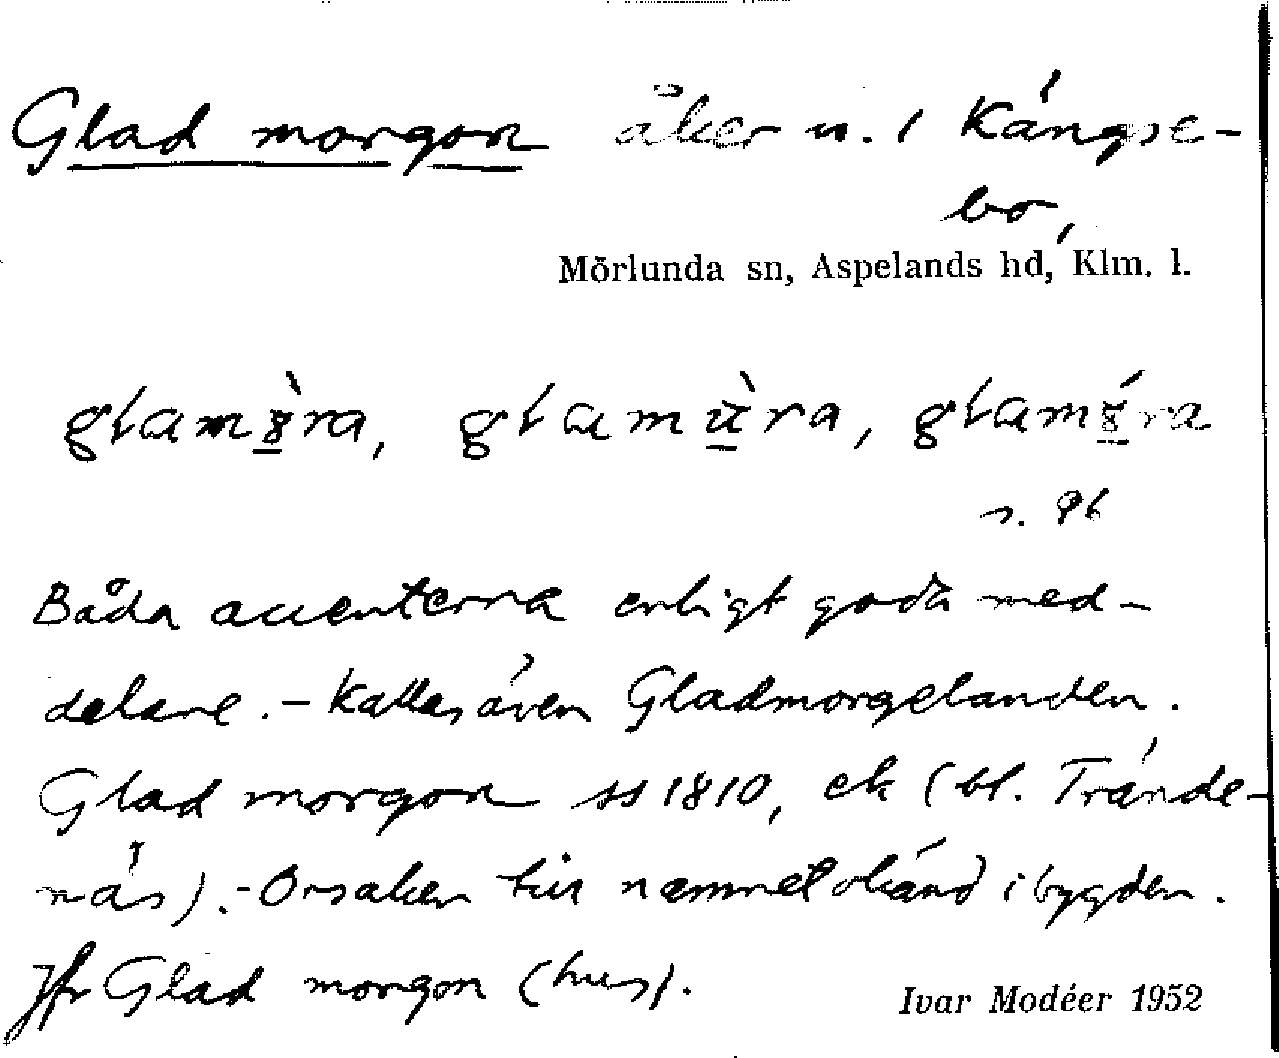 Glad morgon åker n. i Kängse-
bo,
Mörlunda sn, Aspelands hd, Klm. l.
glam̀ra, glamùra, glamŕa
s. 96
Båda accenterna enligt goda med-
delare. – Kallas även Gladmorgelanden.
Glad morgon ss 1810, ek (bl. Trände-
näs). - Orsaken till namnet okänd i bygden.
Jfr Glad morgon (hus).
Ivar Modéer 1952